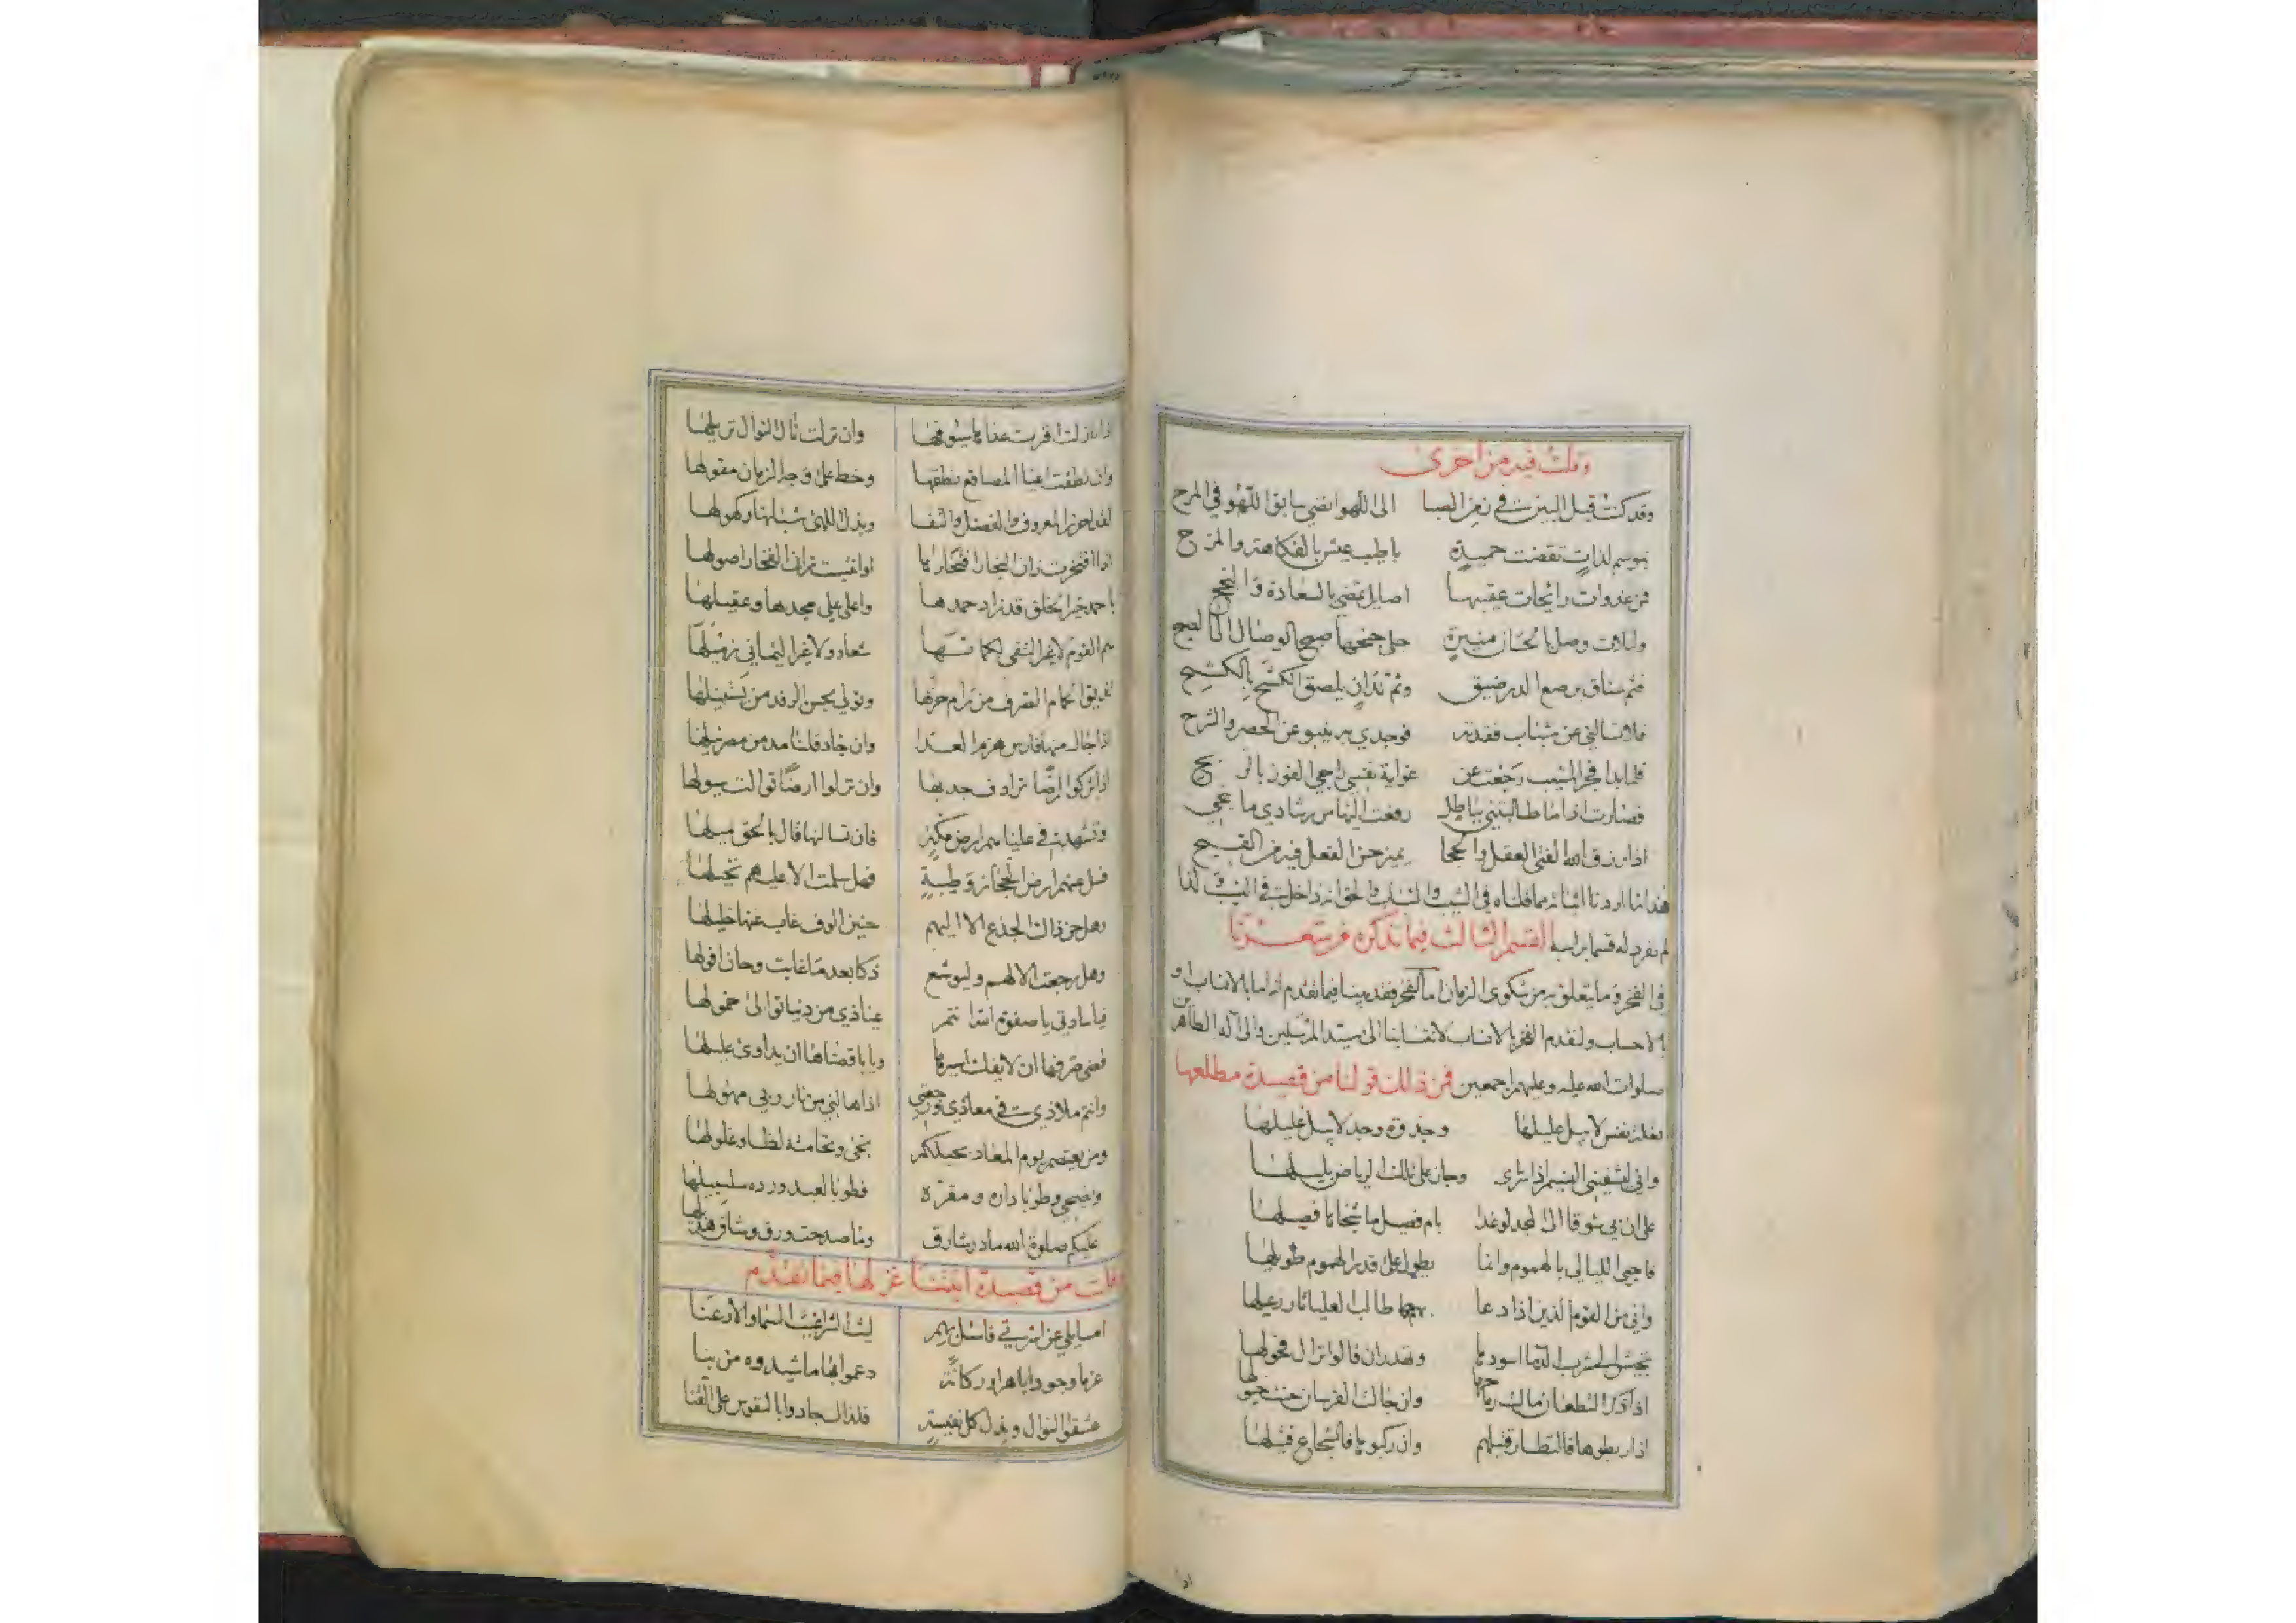 وقلت فيه من اخرى
وقد كنت قبل البين في زمن الصبا الى اللهو انضي سابق اللهو في المرح
بوسم لذات تقضت حميدة باطيب عيش بالفكاهة والمزح
فمن غدوات رائحات عقيبها اصايل تقضي بالسعادة والنجح
وليلات وصل بالحسان منيرة جلى جنحها صبح الوصال الى الصبح
فثم عناق برصع الدر ضيق وثم تدان يلصق الكشح بالكشح
فلا تسالني عن شباب فقدته فوجدي به ينبو عن الحصر والشرح
فلما بدا فجر المشيب رجعت عن غواية نفسي ارجي الفوز بالربح
فصارت اذا ما طالبتني بباطل رفعت اليها من رشادي ما يمحي
اذا رزق الله الفتى العقل والحجا يميز حسن الفعل فيه من القبيح
فهذا ما اردنا اثباته مما قلناه في الشيب والشباب والحق انه داخل في النسيب لذا
لم نفرد له قسما براسه القسم الثالث فيما نذكره من شعرنا
في الفخر وما يتعلق به من شكوى الزمان اما الفخر فقد بينا فيما تقدم انه اما بالانساب او
بالاحساب ولنقدم الفخر بالانساب لانتسابنا الى سيد المرسلين والى آله الطاهرين
صلوات الله عليه وعليهم اجمعين فمن ذلك قولنا من قصيدة مطلعها
نفس لا يبل عليلها وجذوة وجد لا يبل غليلها
واني ليشفيني النسيم اذا سرى وجاز على تلك الرياض بليلها
على ان بي شوقا الى المجد لو غدا بام فصيل ما شجاها فصيلها
فاحيي الليالي بالهموم وانما يطول على قدر الهموم طويلها
واني من القوم الذين اذا دعا بهم طالب العليا رعيلها
اسودها وتهدر ان قالوا نزال فحولها
اذا ذكرا لتطعان مالت رماحها وان جالت الفرسان حنت خيولها
اذا ربطوها وان ركبوها فالشجاع قتيلها
اذا نزلت وان نزلت نال النوال نزيلها
وان نطقت اعيا المصاقع نطقها وخط على وجه الزمان مقولها
لقد احرز المعروف والفضل والتقى وبذل اللهى شبانها وكهولها
اذا افتخرت زان الفخار افتخارها او انتميت زان الفخار اصولها
باحمد خير الخلق قد زاد حمدها واعلى علي مجدها وعقيلها
هم القوم
يذيق الحمام الصرف من رام حربها وتولي بحسن الرفد من يستنيلها
اذا جال منها فارس هزم العدا وان جاد قلنا مد من مصر نيلها
اذا تركوا ارضا ترادف جدبها وان نزلوا ارضا توالت سيولها
وتشهد في عليائهم ارض مكة فان تسالنها قال بالحق ميلها
فسل عنهم ارض الحجاز وطيبة فهل سلمت الا عليهم نخيلها
وهل حن ذاك الجذع الا اليهم حنين الوف غاب عنها خليلها
وهل رجعت الا لهم وليوشع ذكا بعد ما غابت وحان افولها
فيا سادتي يا صفوة الله انتم عياذي من دنيا توالى خمولها
قضى صرفها ان لا يفك اسيرها ويابا قضاها ان يداوى عليلها
وانتم ملاذي في معاذي ورجعتي اذا هالني من نار ربي مهولها
ومن يعتصم يوم المعاد بحبلكم نجى ونحا منه لظا وغلولها
ويضحي وطوبا داره ومقره فطوبا لعبد ورده سلسبيلها
عليكم صلوة الله ما در شارق وما صدحت ورق وشاق هديلها
وقلت من قصيدة اثبتنا غزلها فيما تقدم
امسايلي عن اسرتي فاسل بهم ليث الشرا غيث السما والارعنا
عزما وجودا باهرا وركانة دعموا بها ما شيدوه من بنا
عشقوا النوال وبذل كل نفيسة فلذلك جادوا بالنفوس على القنا